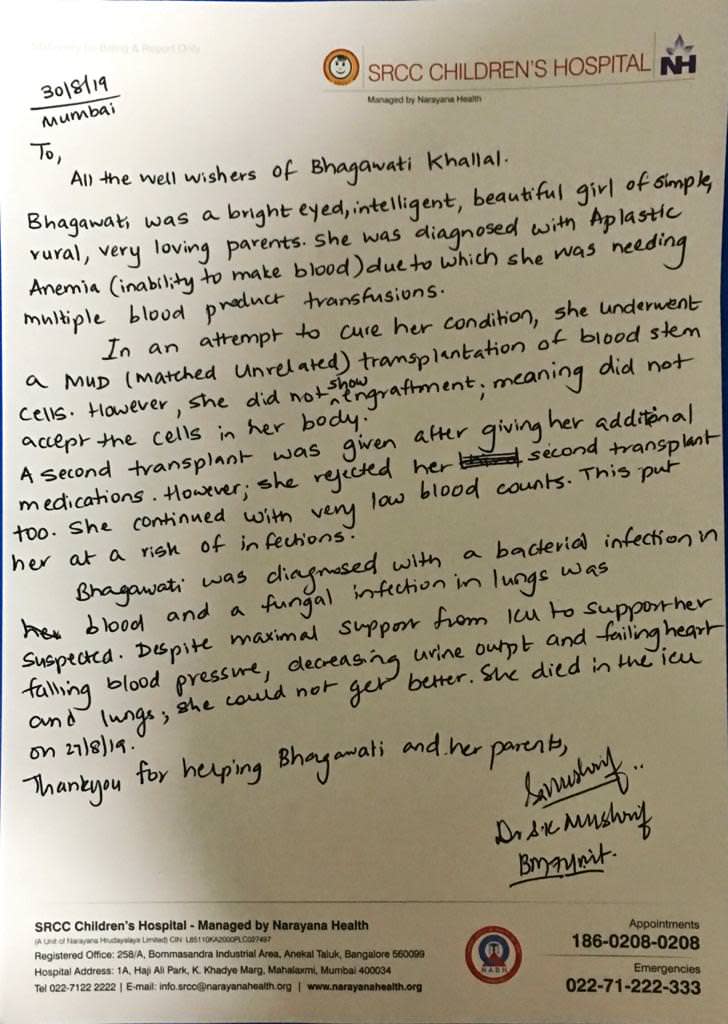 SRCC CHILDREN'S HOSPITAL NH
Managed by Narayana Health
30/8/19
Mumbai
To,
All the well wishers of Bhagawati Khallal.
Bhagawati was a bright eyed, intelligent, beautiful girl of simple,
rural, very loving parents. She was diagnosed with Aplastic
Anemia (inability to make blood) due to which she was needing
multiple blood product transfusions.
In an attempt to cure her condition, she underwent
a MUD (Matched Unrelated) transplantation of blood stem
cells. However, she did not show engraftment; meaning did not
accept the cells in her body.
A second transplant was given after giving her additional
medications. However; she rejected her second transplant
too. She continued with very low blood counts. This put
her at a risk of infections.
Bhagawati was diagnosed with a bacterial infection in
her blood and a fungal infection in lungs was
suspected. Despite maximal support from ICU to support her
falling blood pressure, decreasing urine outpt and failing heart
and lungs; she could not get better. She died in the icu
on 27/8/19.
Thankyou for helping Bhagawati and her parents,
Dr S.K Mushrif
BMT Unit.
SRCC Children's Hospital - Managed by Narayana Health
(A Unit of Narayana Hrudayalaya Limited) CIN: L85110KA2000PLC027497
Registered Office: 258/A, Bommasandra Industrial Area, Anekal Taluk, Bangalore 560099
Hospital Address: 1A, Haji Ali Park, K. Khadye Marg, Mahalaxmi, Mumbai 400034
Tel 022-7122 2222 | E-mail: info.srcc@narayanahealth.org | www.narayanahealth.org
NABH
Appointments
186-0208-0208
Emergencies
022-71-222-333